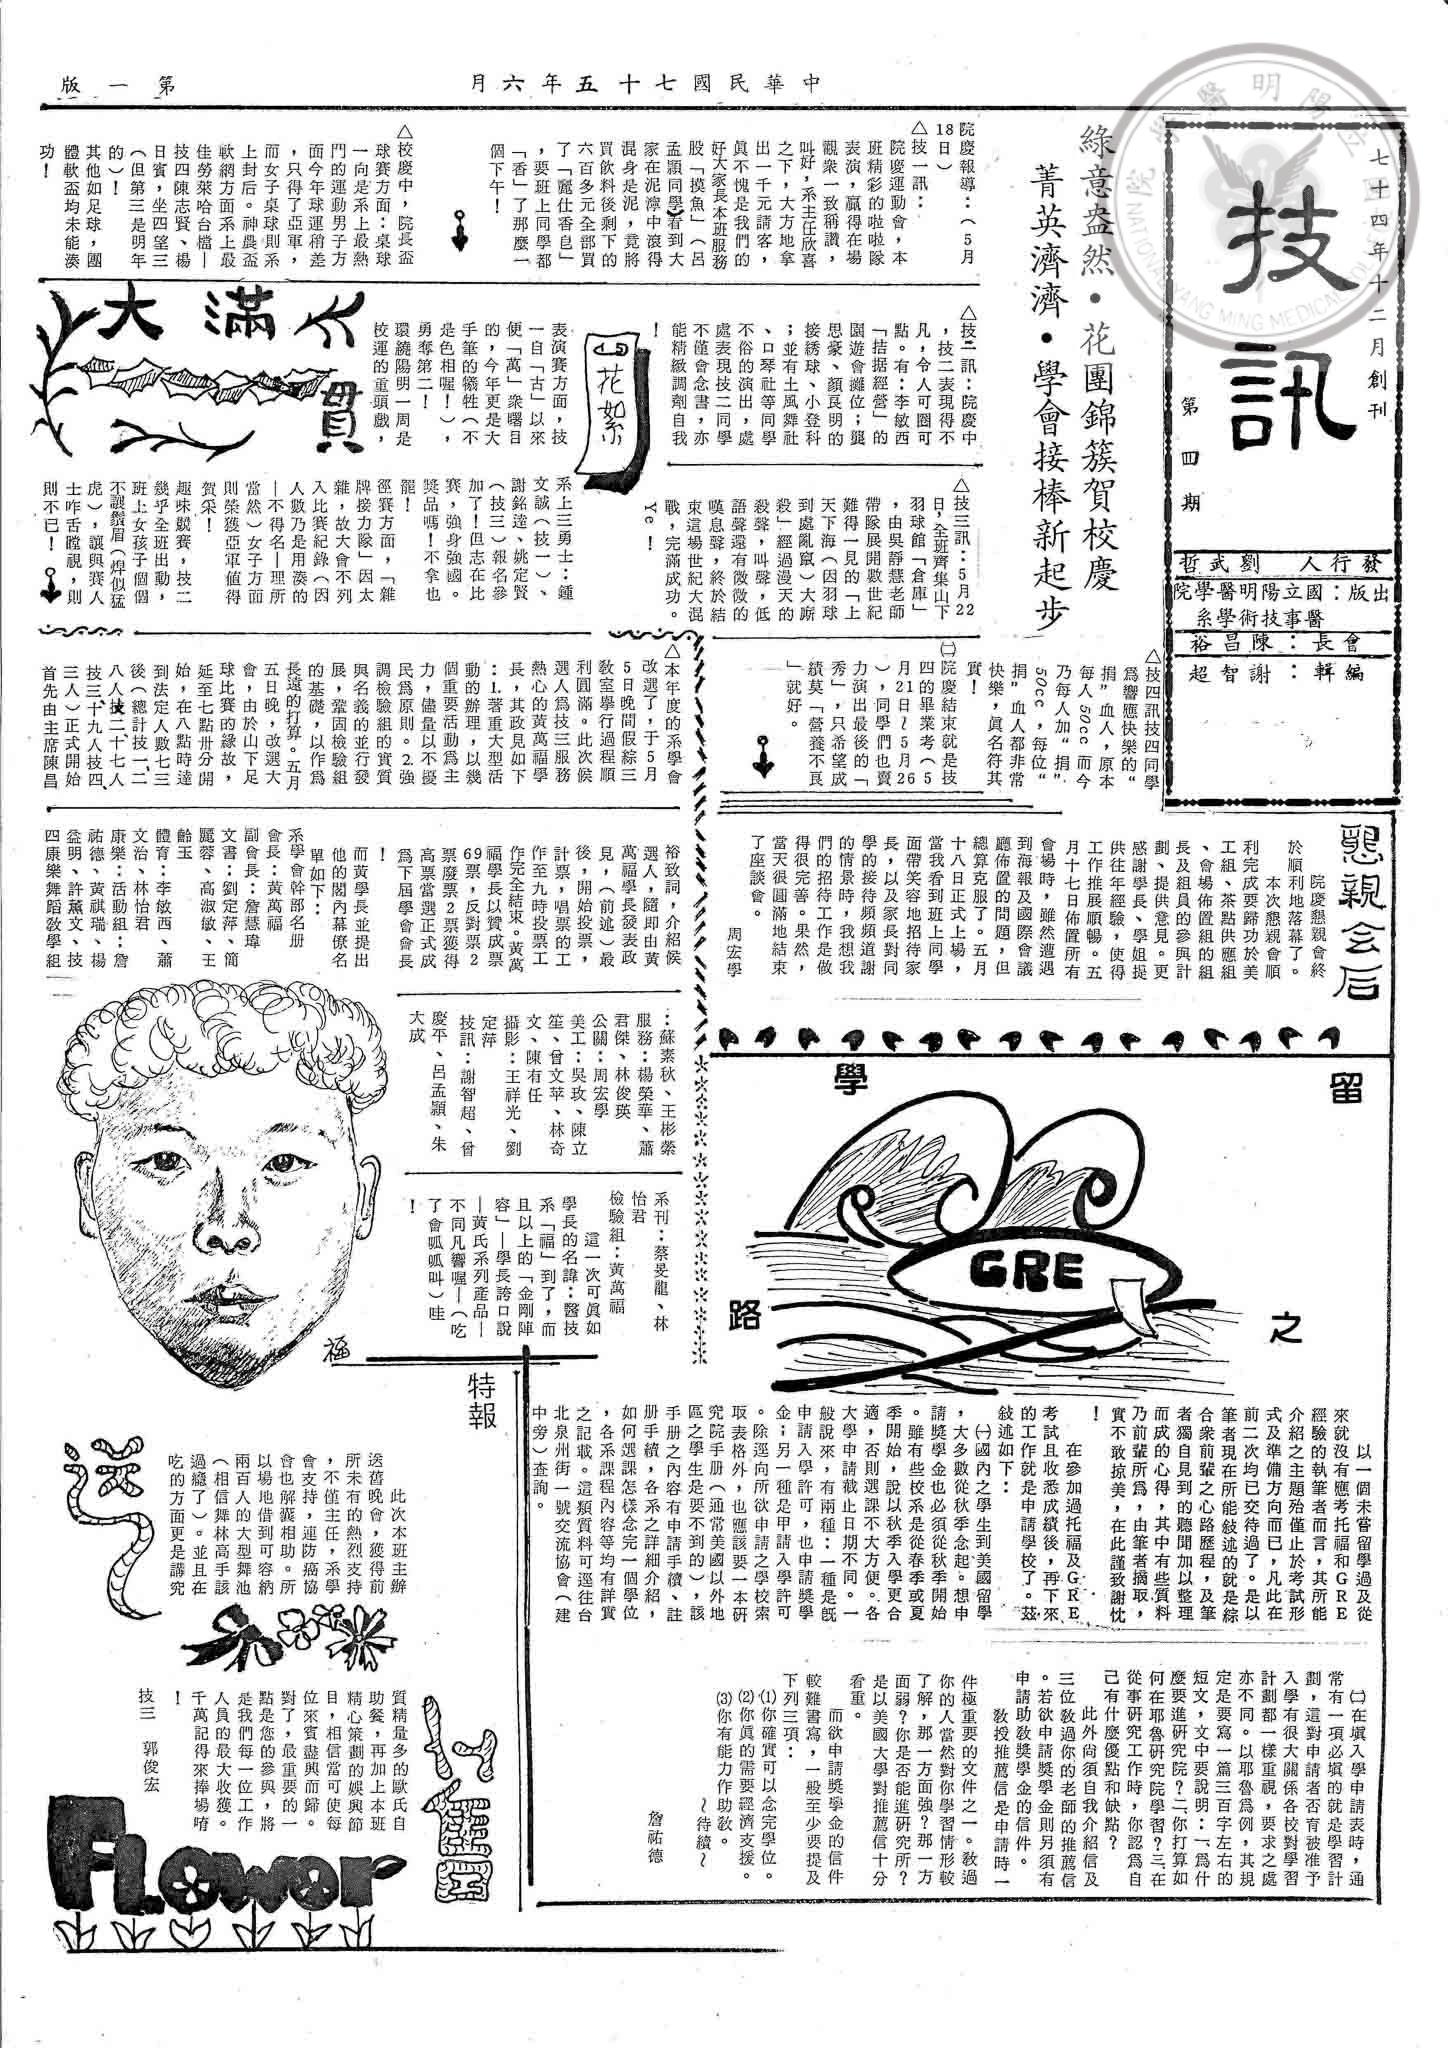 中華民國七十五年六月
第一版
七十四年十二月創刊
技訊
第四期
發行人 劉武哲
出版：國立陽明醫學院
醫事技術學系
會長：陳昌裕
編輯：謝智超
綠意盎然・花團錦簇賀校慶
菁英濟濟・學會接棒新起步
院慶報導：（5月
18日）
△技一訊：
院慶運動會，本
班精彩的啦啦隊
表演，贏得在場
觀衆一致稱讚，
叫好，系主任欣喜
之下，大方地拿
出一千元請客，
眞不愧是我們的
好大家長本班服務
股「摸魚」（呂
孟穎同學）看到大
家在泥濘中滾得
混身是泥，竟將
買飲料後剩下的
六百多元全部買
了「麗仕香皂」
，要班上同學都
「香」了那麼一
個下午！
△校慶中，院長盃
球賽方面：桌球
一向是系上最熱
門的運動男子方
面今年球運稍差
，只得了亞軍，
而女子桌球則系
上封后。神農盃
軟網方面系上最
佳勞萊哈台檔—
技四陳志賢、楊
日賓，坐四望三
（但第三是明年
的）！
其他如足球，團
體軟盃均未能湊
功！
△技二訊：院慶中
，技二表現得不
凡，令人可圈可
點。有：李敏西
「拮据經營」的
園遊會攤位；龔
思豪、顏良明的
接綉球、小登科
；並有土風舞社
、口琴社等同學
不俗的演出，處
處表現技二同學
不僅會念書，亦
能精緻調劑自我
！
花絮
大滿貫
表演賽方面，技
一自「古」以來
便「萬」衆曙目
的，今年更是大
手筆的犧牲（不
是色相喔！），
勇奪第二！
環繞陽明一周是
校運的重頭戲，
系上三勇士：鍾
文誠（技一）、
謝銘達、姚定賢
（技三）報名參
加了！但志在比
賽，強身強國。
獎品嗎！不拿也
罷！
徑賽方面，「雜
牌接力隊」因太
雜，故大會不列
入比賽紀錄（因
人數乃是用湊的
—不得名—理所
當然）女子方面
則榮獲亞軍値得
賀采！
趣味競賽，技二
幾乎全班出動，
班上女孩子個個
不讓鬚眉（焊似猛
虎），讓與賽人
士咋舌瞠視，則
則不已！
△技三訊：5月22
日，全班齊集山下
羽球館「倉庫」
，由吳諍慧老師
帶隊展開數世紀
難得一見的「上
天下海（因羽球
到處亂竄）大廝
殺」經過漫天的
殺聲，叫聲，低
語聲還有微微的
嘆息聲，終於結
束這場世紀大混
戰，完滿成功。
Ye！
△技四訊技四同學
爲響應快樂的“
捐”血人，原本
每人50cc而今
乃每人加“捐”
50cc，每位“
捐”血人都非常
快樂，眞名符其
實！
㈡院慶結束就是技
四的畢業考（5
月21日～5月26
），同學們也賣
力演出最後的「
秀」，只希望成
績莫「營養不良
」就好。
△本年度的系學會
改選了，于5月
5日晚間假綜三
教室舉行過程順
利圓滿。此次候
選人爲技三服務
熱心的黃萬福學
長，其政見如下
：1.著重大型活
動的辦理，以幾
個重要活動爲主
力，儘量以不擾
民爲原則。2.強
調檢驗組的實質
與名義的並行發
展，鞏固檢驗組
的基礎，以作爲
長遠的打算。五月
五日晚，改選大
會，由於山下足
球比賽的緣故，
延至七點卅分開
始，在八點時達
到法定人數七三
後（總計技一、二
八人技二十七人
技三十九人技四、
三人）正式開始
首先由主席陳昌
裕致詞，介紹侯
選人，隨即由黃
萬福學長發表政
見，（前述）最
後，開始投票，
計票，唱票的工
作至九時投票工
作完全結束。黃萬
福學長以贊成票
69票，反對票2
票廢票2票獲得
高票當選正式成
爲下屆學會會長
！
而黃學長並提出
他的閣內幕僚名
單如下：
系學會幹部名册
會長：黃萬福
副會長：詹慧瑋
文書：劉定萍、簡
麗蓉、高淑敏、王
齡玉
體育：李敏西、蕭
文治、林怡君
康樂：活動組：詹
祐德、黃祺瑞、楊
益明、許薰文、技
四康樂舞蹈敎學組
：蘇素秋、王彬縈
服務：楊榮華、蕭
君傑、林俊瑛
公關：周宏學
美工：吳玫、陳立
笙、曾文苹、林奇
文、陳有任
攝影：王祥光、劉
定萍
技訊：謝智超、曾
慶平、呂孟穎、朱
大成
系刊：蔡旻龍、林
怡君
檢驗組：黃萬福
這一次可眞如
學長的名諱：醫技
系「福」到了，而
且以上的「金剛陣
容」—學長誇口說
—黃氏系列產品—
不同凡響喔—（吃
了會呱呱叫）哇
！
福
懇親会后
院慶懇親會終
於順利地落幕了。
本次懇親會順
利完成要歸功於美
工組、茶點供應組
、會場佈置組的組
長及組員的參與計
劃、提供意見。更
感謝學長、學姐提
供往年經驗，使得
工作推展順暢。五
月十七日佈置所有
會場時，雖然遭遇
到海報及國際會議
廳佈置的問題，但
總算克服了。五月
十八日正式上場，
當我看到班上同學
面帶笑容地招待家
長，以及家長對同
學的接待頻頻道謝
的情景時，我想我
們的招待工作是做
得很完善。果然，
當天很圓滿地結束
了座談會。
周宏學
留學之路
GRE
以一個未嘗留學過及從
來就沒有應考托福和GRE
經驗的執筆者而言，其所能
介紹之主題殆僅止於考試形
式及準備方向而已，凡此在
前二次均已交待過了。是以
筆者現在所能敍述的就是綜
合衆前輩之心路歷程，及筆
者獨自見到的聽聞加以整理
而成的心得，其中有些質料
乃前輩所爲，由筆者摘取，
實不敢掠美，在此謹致謝忱
！
在參加過托福及GRE
考試且收悉成績後，再下來
的工作就是申請學校了。茲
敍述如下：
㈠國內之學生到美國留學
，大多數從秋季念起。想申
請獎學金也必須從秋季開始
。雖有些校系是從春季或夏
季開始，說以秋季入學更合
適，否則選課不大方便。各
大學申請截止日期不同。一
般說來，有兩種：一種是旣
申請入學許可，也申請獎學
金；另一種是申請入學許可
。除逕向所欲申請之學校索
取表格外，也應該要一本硏
究院手册（通常美國以外地
區之學生是要不到的），該
手册之內容有申請手續、註
册手續，各系之詳細介紹，
如何選課怎樣念完一個學位
，各系課程內容等均有詳實
之記載。這類質料可逕往台
北泉州街一號交流協會（建
中旁）查詢。
㈡在塡入學申請表時，通
常有一項必塡的就是學習計
劃，這對申請者否有被准予
入學有很大關係各校對學習
計劃都一樣重視，要求之處
亦不同。以耶魯爲例，其規
定是要寫一篇三百字左右的
短文，文中要說明：一、爲什
麼要進硏究院？二、你打算如
何在耶魯硏究院學習？三、在
從事研究工作時，你認爲自
己有什麼優點和缺點？
此外尙須自我介紹信及
三位敎過你的老師的推薦信
。若欲申請獎學金則另須有
申請助敎獎學金的信件。
敎授推薦信是申請時一
件極重要的文件之一。敎過
你的人當然對你學習情形較
了解，那一方面強？那一方
面弱？你是否能進硏究所？
是以美國大學對推薦信十分
看重。
而欲申請獎學金的信件
較難書寫，一般至少要提及
下列三項：
⑴你確實可以念完學位。
⑵你眞的需要經濟支援。
⑶你有能力作助敎。
～待續～
詹祐德
特報
送舊
此次本班主辦
送舊晚會，獲得前
所未有的熱烈支持
，不僅主任，系學
會支持，連防癌協
會也解囊相助。所
以場地借到可容納
兩百人的大型舞池
（相信舞林高手該
過癮了）。並且在
吃的方面更是講究
質精量多的歐氏自
助餐，再加上本班
精心策劃的娛興節
目，相信當可使每
位來賓盡興而歸。
對了，最重要的一
點是您的參興，將
是我們每一位工作
人員的最大收獲。
千萬記得來捧場唷
！
技三 郭俊宏
FLOWOR
國立陽明醫學院
NATIONAL YANG MING MEDICAL COLLEGE